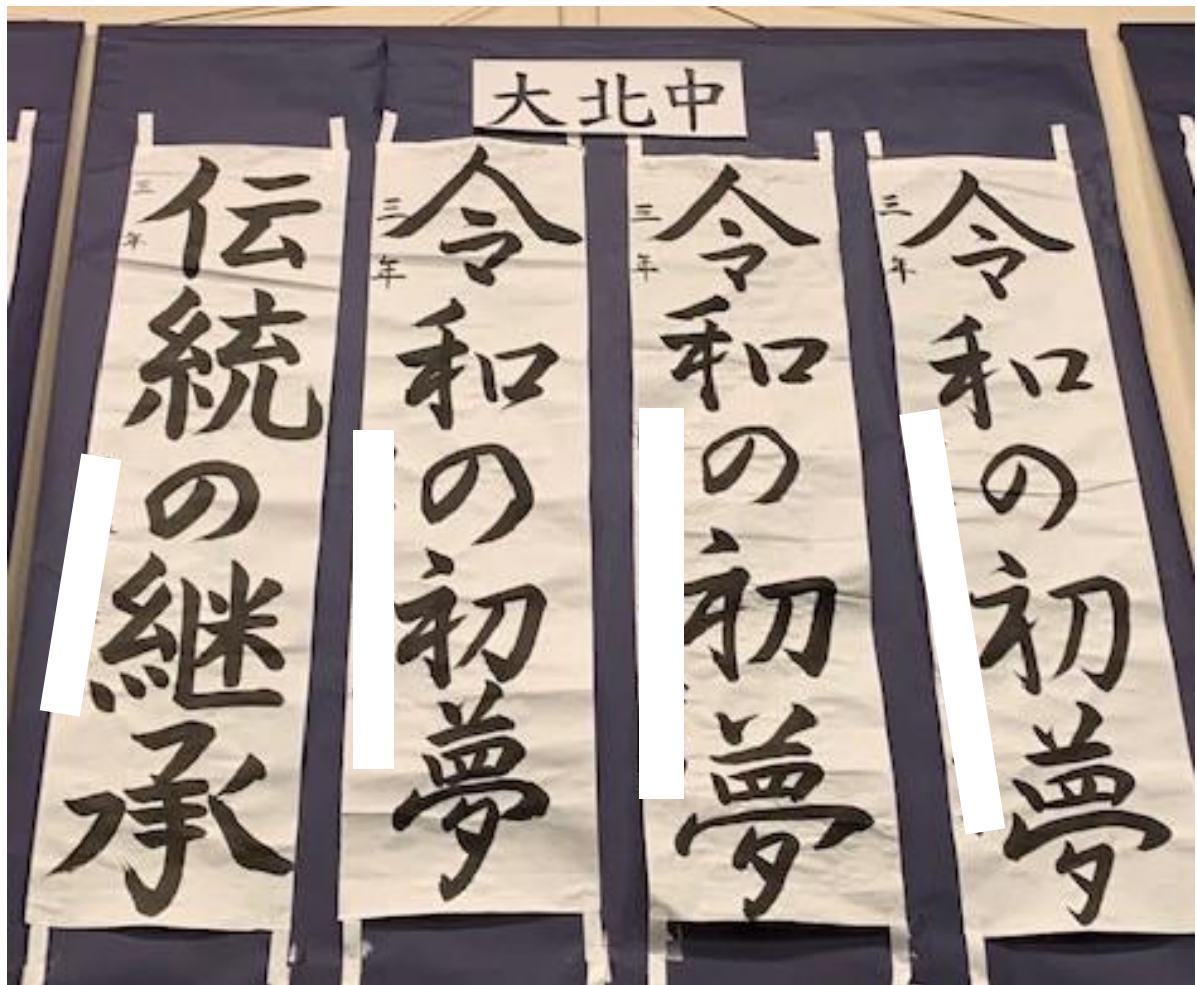 大北中
令和の初夢
三年
令和の初夢
三年
令和の初夢
三年
伝統の継承
三年